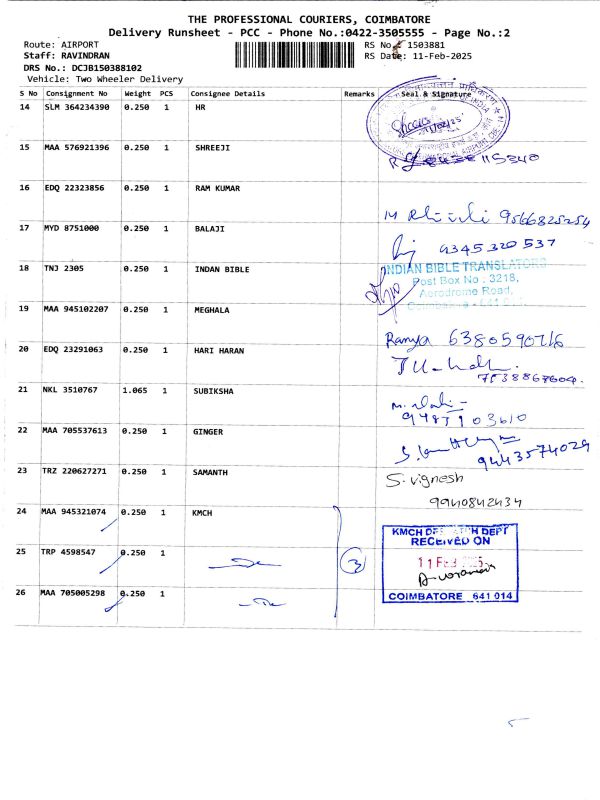 THE PROFESSIONAL COURIERS, COIMBATORE
Delivery Runsheet - PCC - Phone No.:0422-3505555 - Page No.:2
Route: AIRPORT
Staff: RAVINDRAN
DRS No.: DCJB150388102
Vehicle: Two Wheeler Delivery
RS No.: 1503881
RS Date: 11-Feb-2025
S No Consignment No Weight PCS Consignee Details Remarks Seal & Signature
14 SLM 364234390 0.250 1 HR
15 MAA 576921396 0.250 1 SHREEJI
16 EDQ 22323856 0.250 1 RAM KUMAR
9566825254
17 MYD 8751000 0.250 1 BALAJI
9345320537
18 TNJ 2305 0.250 1 INDAN BIBLE
INDIAN BIBLE TRANSLATORS
Post Box No : 3218,
Aerodrome Road,
Coimbatore - 641 014
19 MAA 945102207 0.250 1 MEGHALA
Ramya 6380590716
20 EDQ 23291063 0.250 1 HARI HARAN
7538867604.
21 NKL 3510767 1.065 1 SUBIKSHA
9487103610
22 MAA 705537613 0.250 1 GINGER
9443574029
23 TRZ 220627271 0.250 1 SAMANTH
S. vignesh
9940842434
24 MAA 945321074 0.250 1 KMCH
25 TRP 4598547 0.250 1
3
26 MAA 705005298 0.250 1
KMCH DEPT
RECEIVED ON
11 FEB 2025
COIMBATORE 641 014